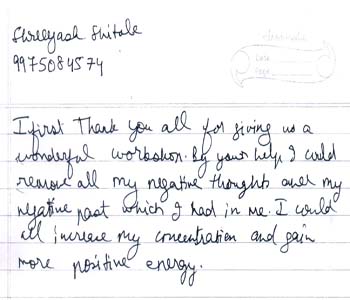 Shreeyash Shitole
9975084574
classmate
Date
Page
I first Thank you all for giving us a
wonderful workshop. By your help I could
remove all my negative thoughts and my
negative past which I had in me. I could
all increase my concentration and gain
more positive energy.